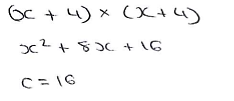 (x + 4) × (x + 4)
x² + 8x + 16
c = 16